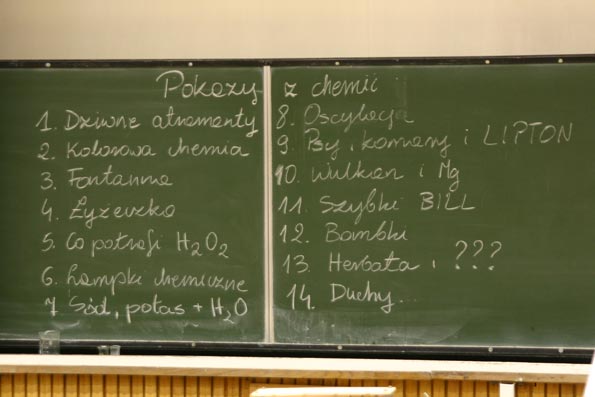 Pokazy z chemii
1. Dziwne atramenty
2. Kolorowa chemia
3. Fontanna
4. Łyżeczka
5. Co potrafi H₂O₂
6. Lampki chemiczne
7. Sód, potas + H₂O
8. Oscylacja
9. Psy, komary i LIPTON
10. Wulkan i Mg
11. Szybki BILL
12. Bombki
13. Herbata i ???
14. Duchy...